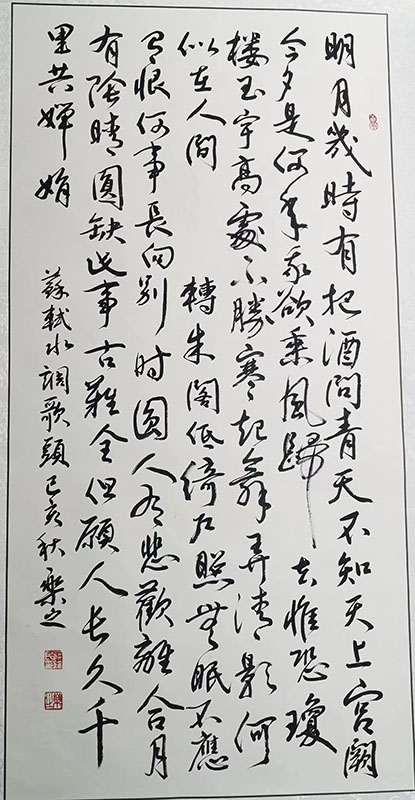 明月幾時有把酒問青天不知天上宮闕
今夕是何年我欲乘風歸去惟恐瓊
樓玉宇高處不勝寒起舞弄清影何
似在人間 轉朱閣低綺户照無眠不應
有恨何事長向別时圓人有悲歡離合月
有陰晴圓缺此事古難全但願人長久千
里共嬋娟
蘇軾水調歌頭己亥秋樂之